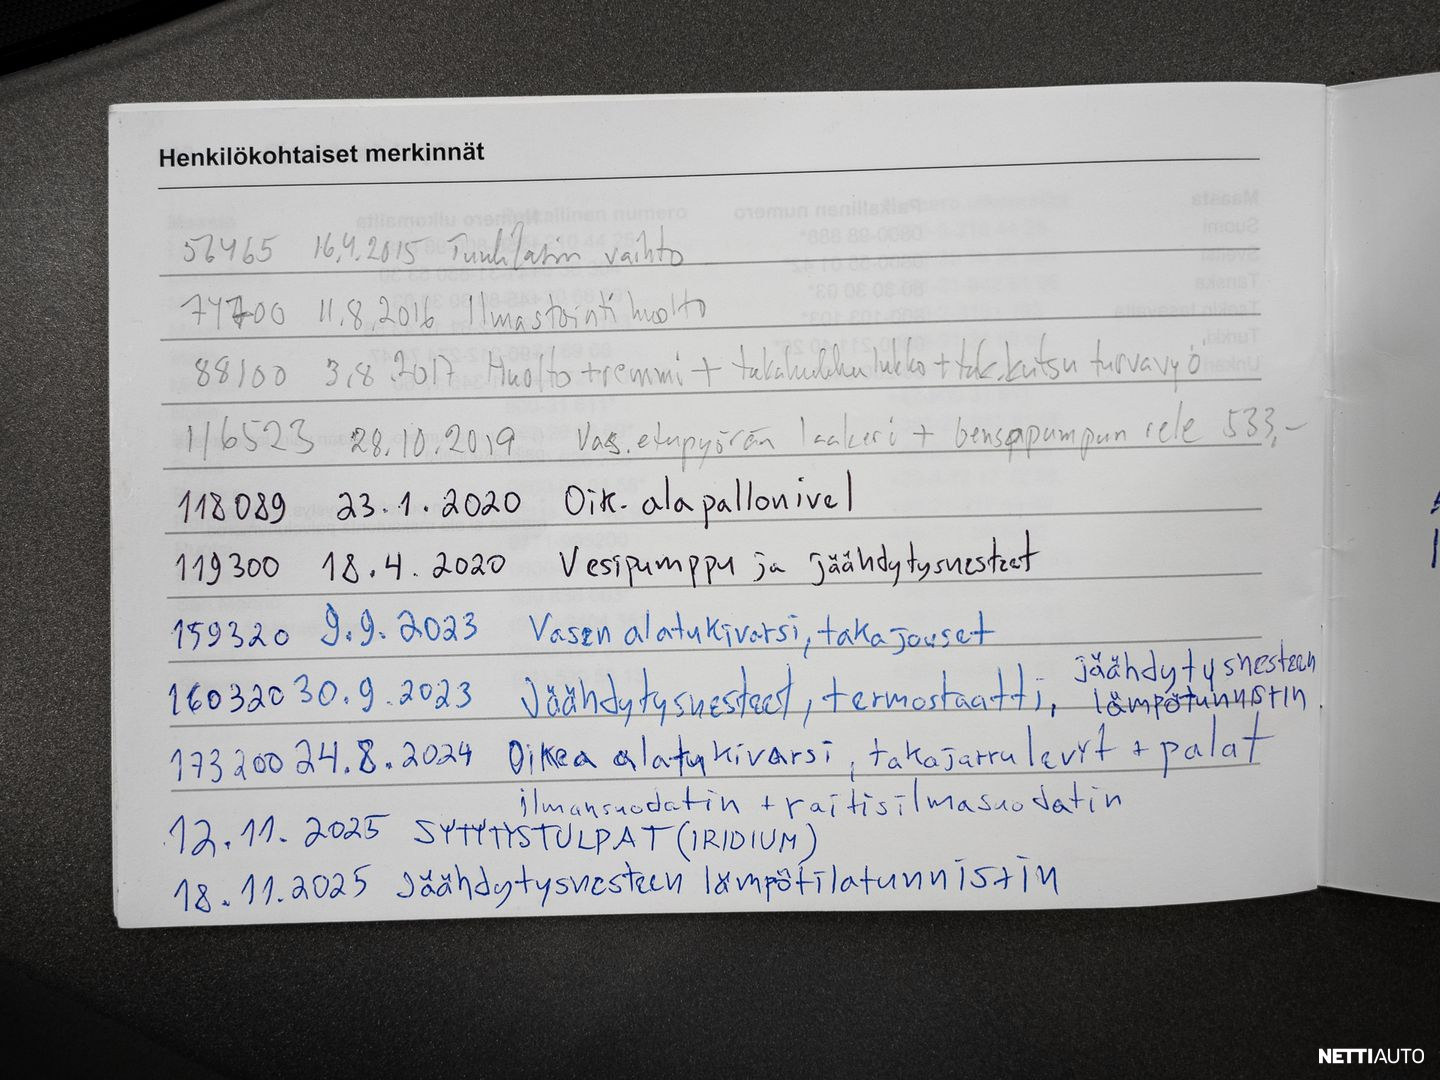 Henkilökohtaiset merkinnät
56465 16.4.2015 Tuulilasin vaihto
77700 11.8.2016 Ilmastointi huolto
88100 3.8.2017 Huolto + remmi + takaluukku lukko + tak. turvavyö
116523 28.10.2019 Vas. etupyörän laakeri + bensapumpun rele 533,-
118089 23.1.2020 Oik. alapallonivel
119300 18.4.2020 Vesipumppu ja jäähdytysnesteet
159320 9.9.2023 Vasen alatukivarsi, takajouset
160320 30.9.2023 Jäähdytysnesteet, termostaatti, jäähdytysnesteen
lämpötunnistin
173200 24.8.2024 Oikea alatukivarsi, takajarrulevyt + palat
ilmansuodatin + raitisilmasuodatin
12.11.2025 SYTYTYSTULPAT (IRIDIUM)
18.11.2025 Jäähdytysnesteen lämpötilatunnistin
NETTIAUTO